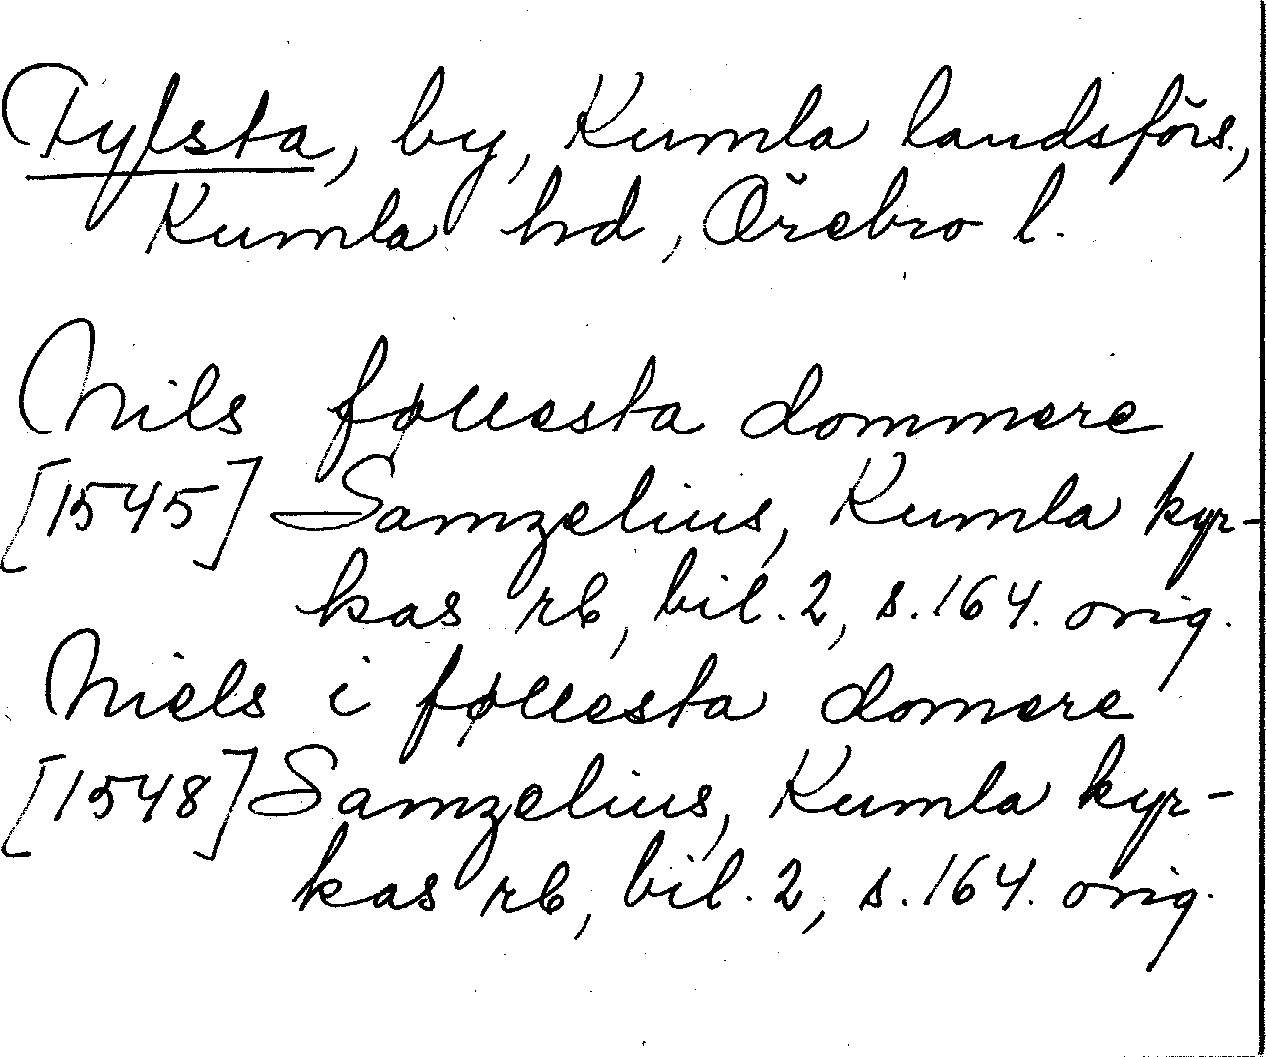 Fylsta, by, Kumla landsförs.,
Kumla hd, Örebro l.
Nils føllesta dommere
[1545] Samzelius, Kumla kyr-
kas rb, bil. 2, s. 164. orig.
Niels i føllesta domere
[1548] Samzelius, Kumla kyr-
kas rb, bil. 2, s. 164. orig.